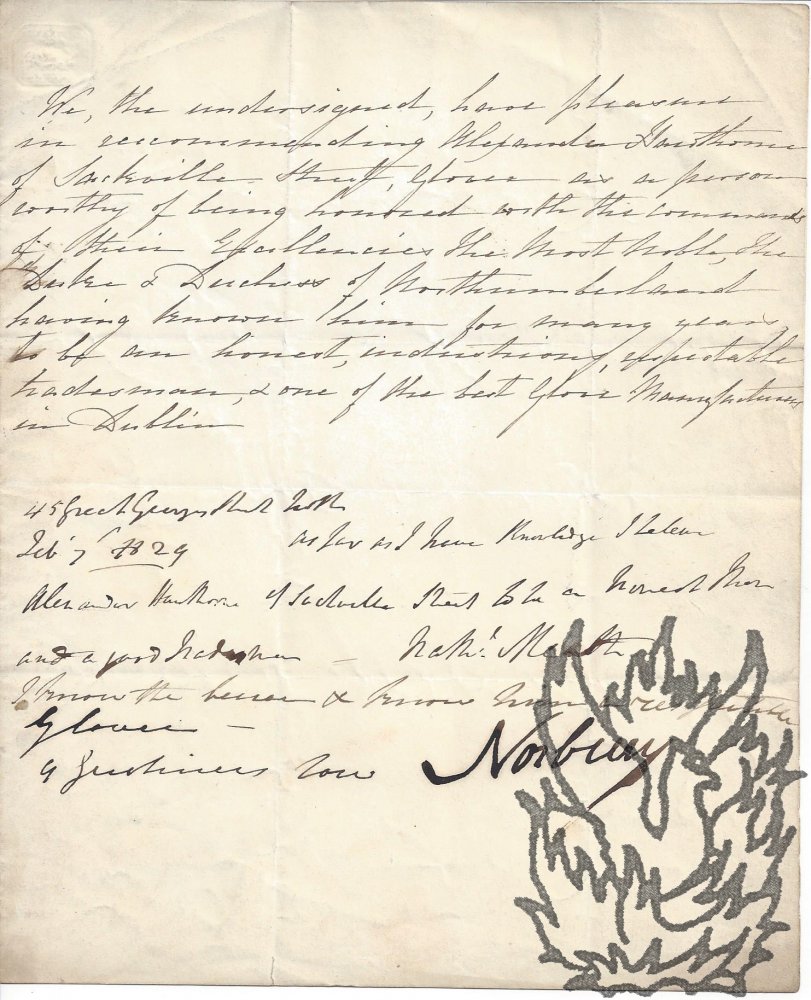 We, the undersigned, have pleasure
in recommending Alexander Hawthorne
of Sackville Street, Glover as a person
worthy of being honored with the commands
of their Excellencies The Most Noble, The
Duke & Duchess of Northumberland
having known him for many years
to be an honest, industrious, respectable
tradesman, & one of the best Glove Manufacturers
in Dublin
45 Great Georges Street North
Feby 7 1829 as far as I have Knowledge I believe
Alexander Hawthorne of Sackville Street to be an Honest Man
and a good Tradesman —
I know the bearer & know him
Glover —
9 Gardiners Row Norbury